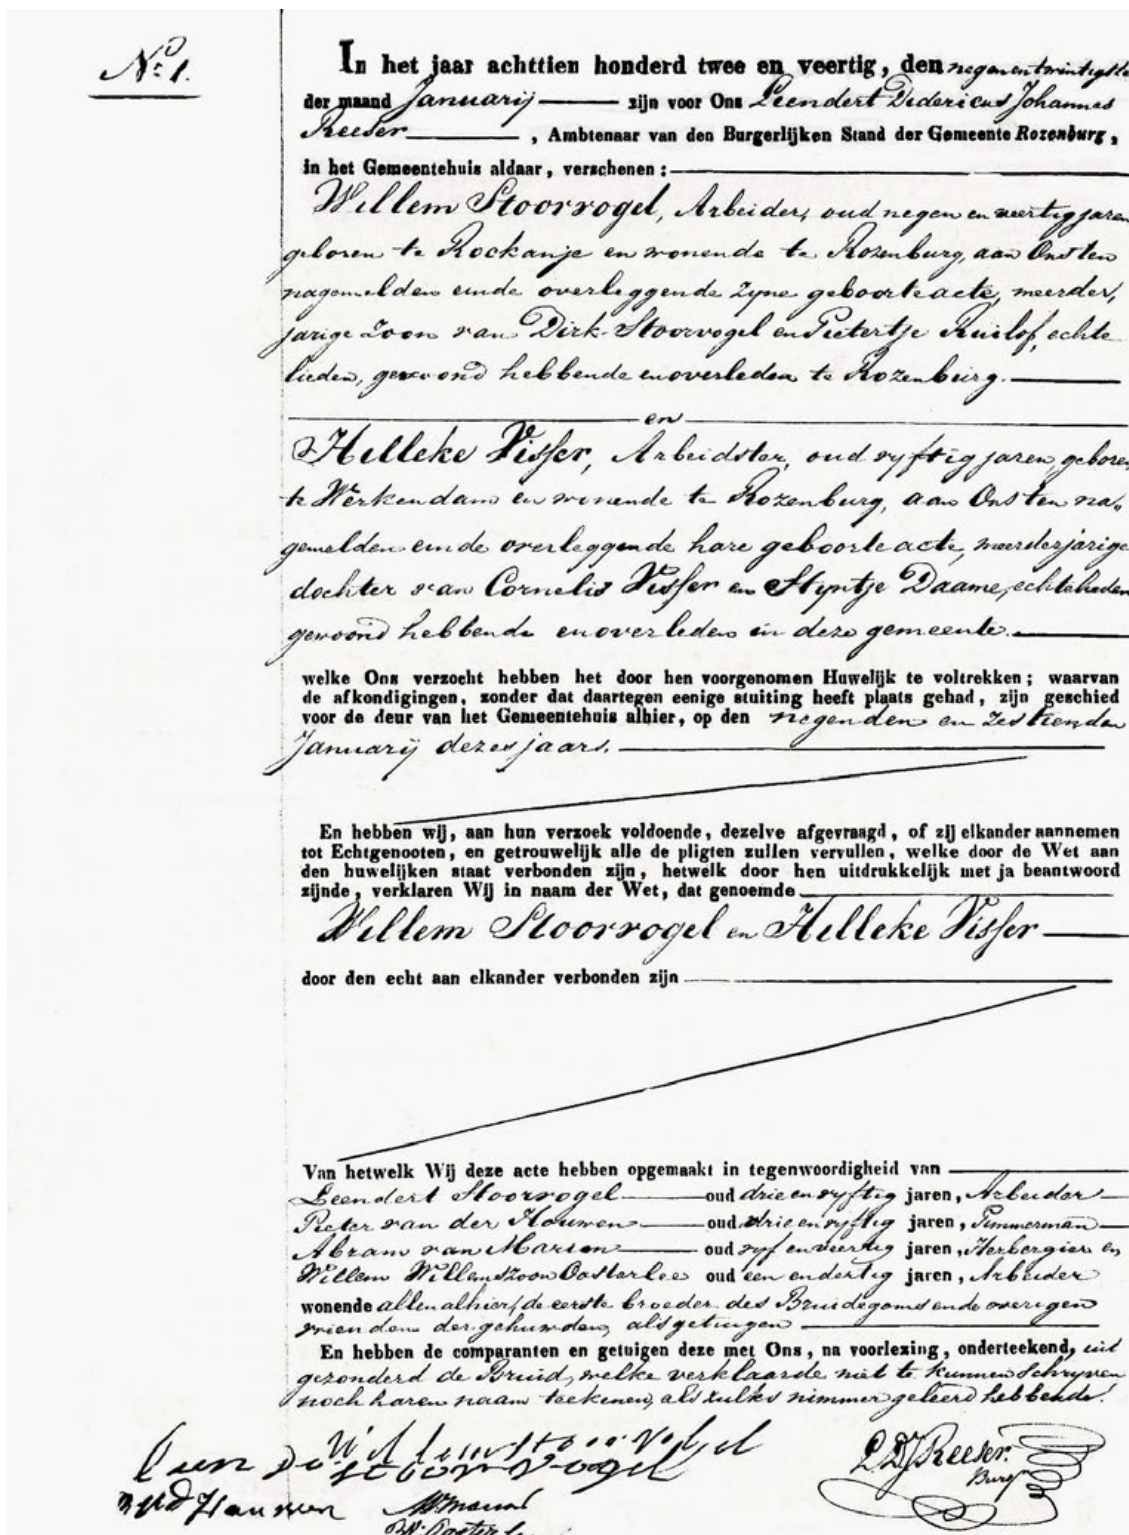 No. 1.
In het jaar achttien honderd twee en veertig, den negenentwintigste
der maand Januarij zijn voor Ons Leendert Didericus Johannes
Reeser, Ambtenaar van den Burgerlijken Stand der Gemeente Rozenburg,
in het Gemeentehuis aldaar, verschenen:
Willem Stoorvogel, Arbeider, oud negen en veertig jaren
geboren te Rockanje en wonende te Rozenburg, aan Ons ten
nagemelden einde overleggende zyne geboorteacte, meerder,
jarige zoon van Dirk Stoorvogel en Pietertje Ruilof, echte
lieden, gewoond hebbende en overleden te Rozenburg.
en
Hilleke Visser, Arbeidster, oud vyftig jaren, geboren
te Werkendam en wonende te Rozenburg, aan Ons ten na„
gemelden einde overleggende hare geboorteacte, meerderjarige
dochter van Cornelis Visser en Styntje Daame, echtelieden
gewoond hebbende en overleden in deze gemeente.
welke Ons verzocht hebben het door hen voorgenomen Huwelijk te voltrekken; waarvan
de afkondigingen, zonder dat daartegen eenige stuiting heeft plaats gehad, zijn geschied
voor de deur van het Gemeentehuis alhier, op den negenden en zestienden
Januarij dezes jaars.
En hebben wij, aan hun verzoek voldoende, dezelve afgevraagd, of zij elkander aannemen
tot Echtgenooten, en getrouwelijk alle de pligten zullen vervullen, welke door de Wet aan
den huwelijken staat verbonden zijn, hetwelk door hen uitdrukkelijk met ja beantwoord
zijnde, verklaren Wij in naam der Wet, dat genoemde
Willem Stoorvogel en Hilleke Visser
door den echt aan elkander verbonden zijn
Van hetwelk Wij deze acte hebben opgemaakt in tegenwoordigheid van
Leendert Stoorvogel oud drie en vyftig jaren, Arbeider
Pieter van der Houwen oud drie en vyftig jaren, Timmerman
Abram van Marion oud vyf en veertig jaren, Herbergier en
Willem Willemszoon Oosterlee oud een en dertig jaren, Arbeider
wonende allen alhier, de eerste broeder des Bruidegoms en de overigen
vrienden der gehuwden, als getuigen
En hebben de comparanten en getuigen deze met Ons, na voorlezing, onderteekend, uit
gezonderd de Bruid, welke verklaarde niet te kunnen schryven
noch haren naam teekenen, als zulks nimmer geleerd hebbende.
Willem Stoorvogel
stoorvogel
L D J Reeser.
Burgr